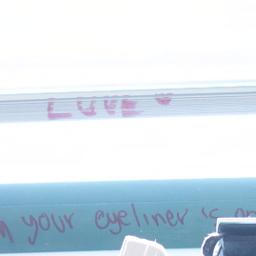 LOVE ♥
your eyeliner is